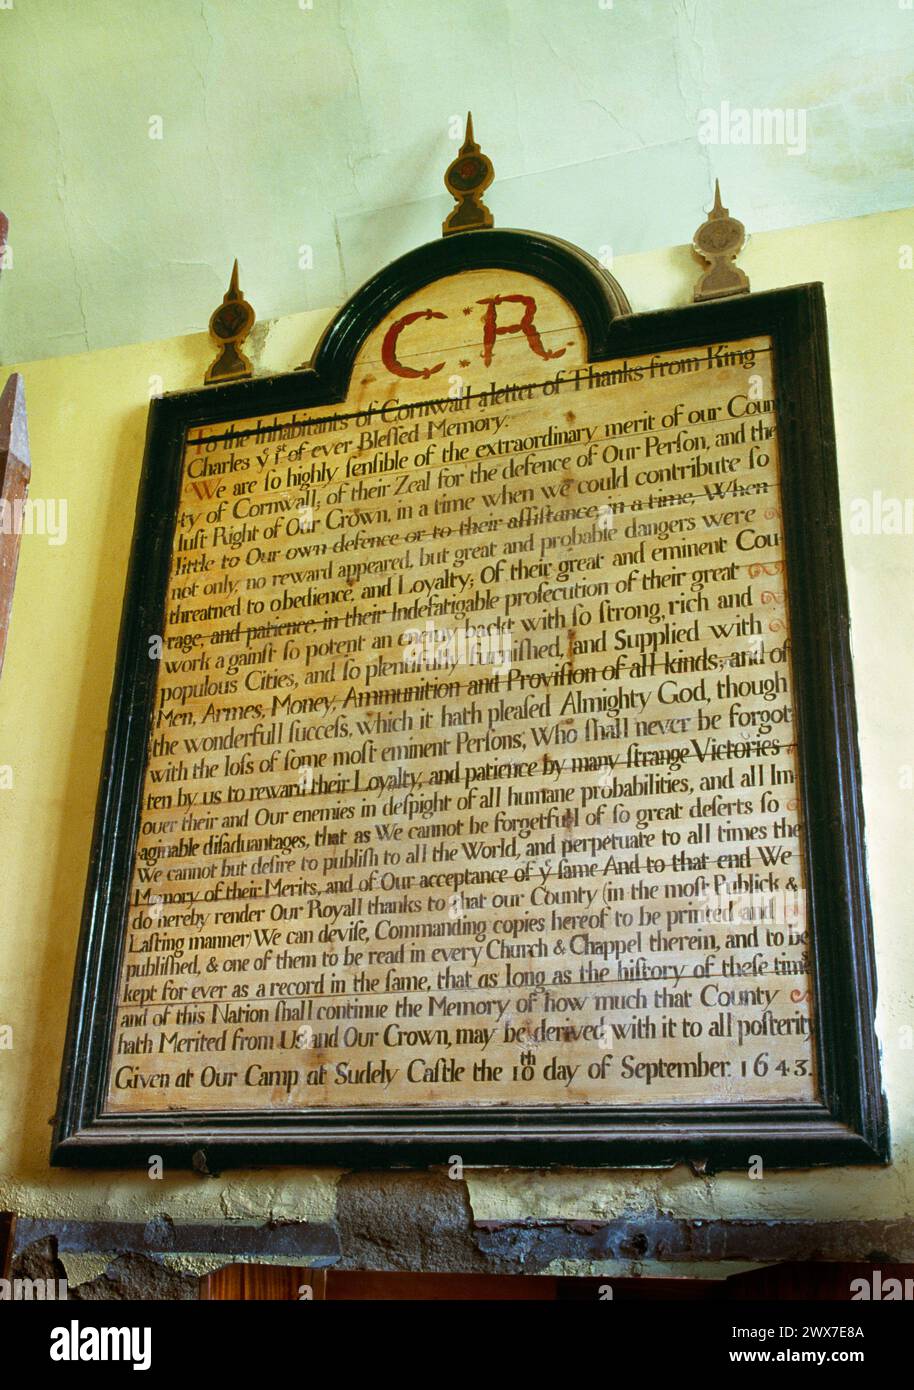 C·R·
To the Inhabitants of Cornwall a letter of Thanks from King
Charles yͤ 1ˢᵗ of ever Bleſſed Memory.
We are ſo highly ſenſible of the extraordinary merit of our Coun
ty of Cornwall; of their Zeal for the defence of Our Perſon, and the
Iuſt Right of Our Crown, in a time when we could contribute ſo
little to Our own defence or to their aſſiſtance, in a time, When
not only, no reward appeared, but great and probable dangers were
threatned to obedience, and Loyalty; Of their great and eminent Cou-
rage, and patience, in their Indefatigable proſecution of their great
work against ſo potent an enemy backt with ſo ſtrong, rich and
populous Cities, and ſo plentifully furniſhed, and Supplied with
Men, Armes, Money, Ammunition and Proviſion of all kinds; and of
the wonderfull ſucceſs, which it hath pleaſed Almighty God, though
with the loſs of ſome moſt eminent Perſons, Who ſhall never be forgot
ten by us to reward their Loyalty, and patience by many ſtrange Victories
over their and Our enemies in deſpight of all humane probabilities, and all Im-
aginable diſadvantages, that as We cannot be forgetfull of ſo great deſerts ſo
We cannot but deſire to publiſh to all the World, and perpetuate to all times the
Memory of their Merits, and of Our acceptance of yͤ ſame And to that end We
do hereby render Our Royall thanks to that our County (in the moſt Publick &
Laſting manner) We can deviſe, Commanding copies hereof to be printed and
publiſhed, & one of them to be read in every Church & Chappel therein, and to be
kept for ever as a record in the ſame, that as long as the hiſtory of theſe times
and of this Nation ſhall continue the Memory of how much that County
hath Merited from Us and Our Crown, may be derived with it to all poſterity
Given at Our Camp at Sudely Caſtle the 10ᵗʰ day of September. 1643.
alamy
Image ID: 2WX7E8A
www.alamy.com